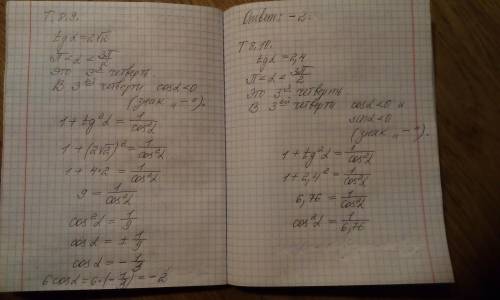 Т.8.9.
tgα = 2√2
π < α < 3π/2
Это 3ья четверть
В 3ей четверти cosα < 0
(знак „−").
1 + tg²α = 1/cos²α
1 + (2√2)² = 1/cos²α
1 + 4·2 = 1/cos²α
9 = 1/cos²α
cos²α = 1/9
cosα = ± 1/9
cosα = − 1/3
6cosα = 6·(−1/3) = −2
Ответ: −2.
Т 8.10.
tgα = 2,4
π < α < 3π/2
Это 3ья четверть
В 3ей четверти cosα < 0 и
sinα < 0
(знак „−")
1 + tg²α = 1/cos²α
1 + 2,4² = 1/cos²α
6,76 = 1/cos²α
cos²α = 1/6,76